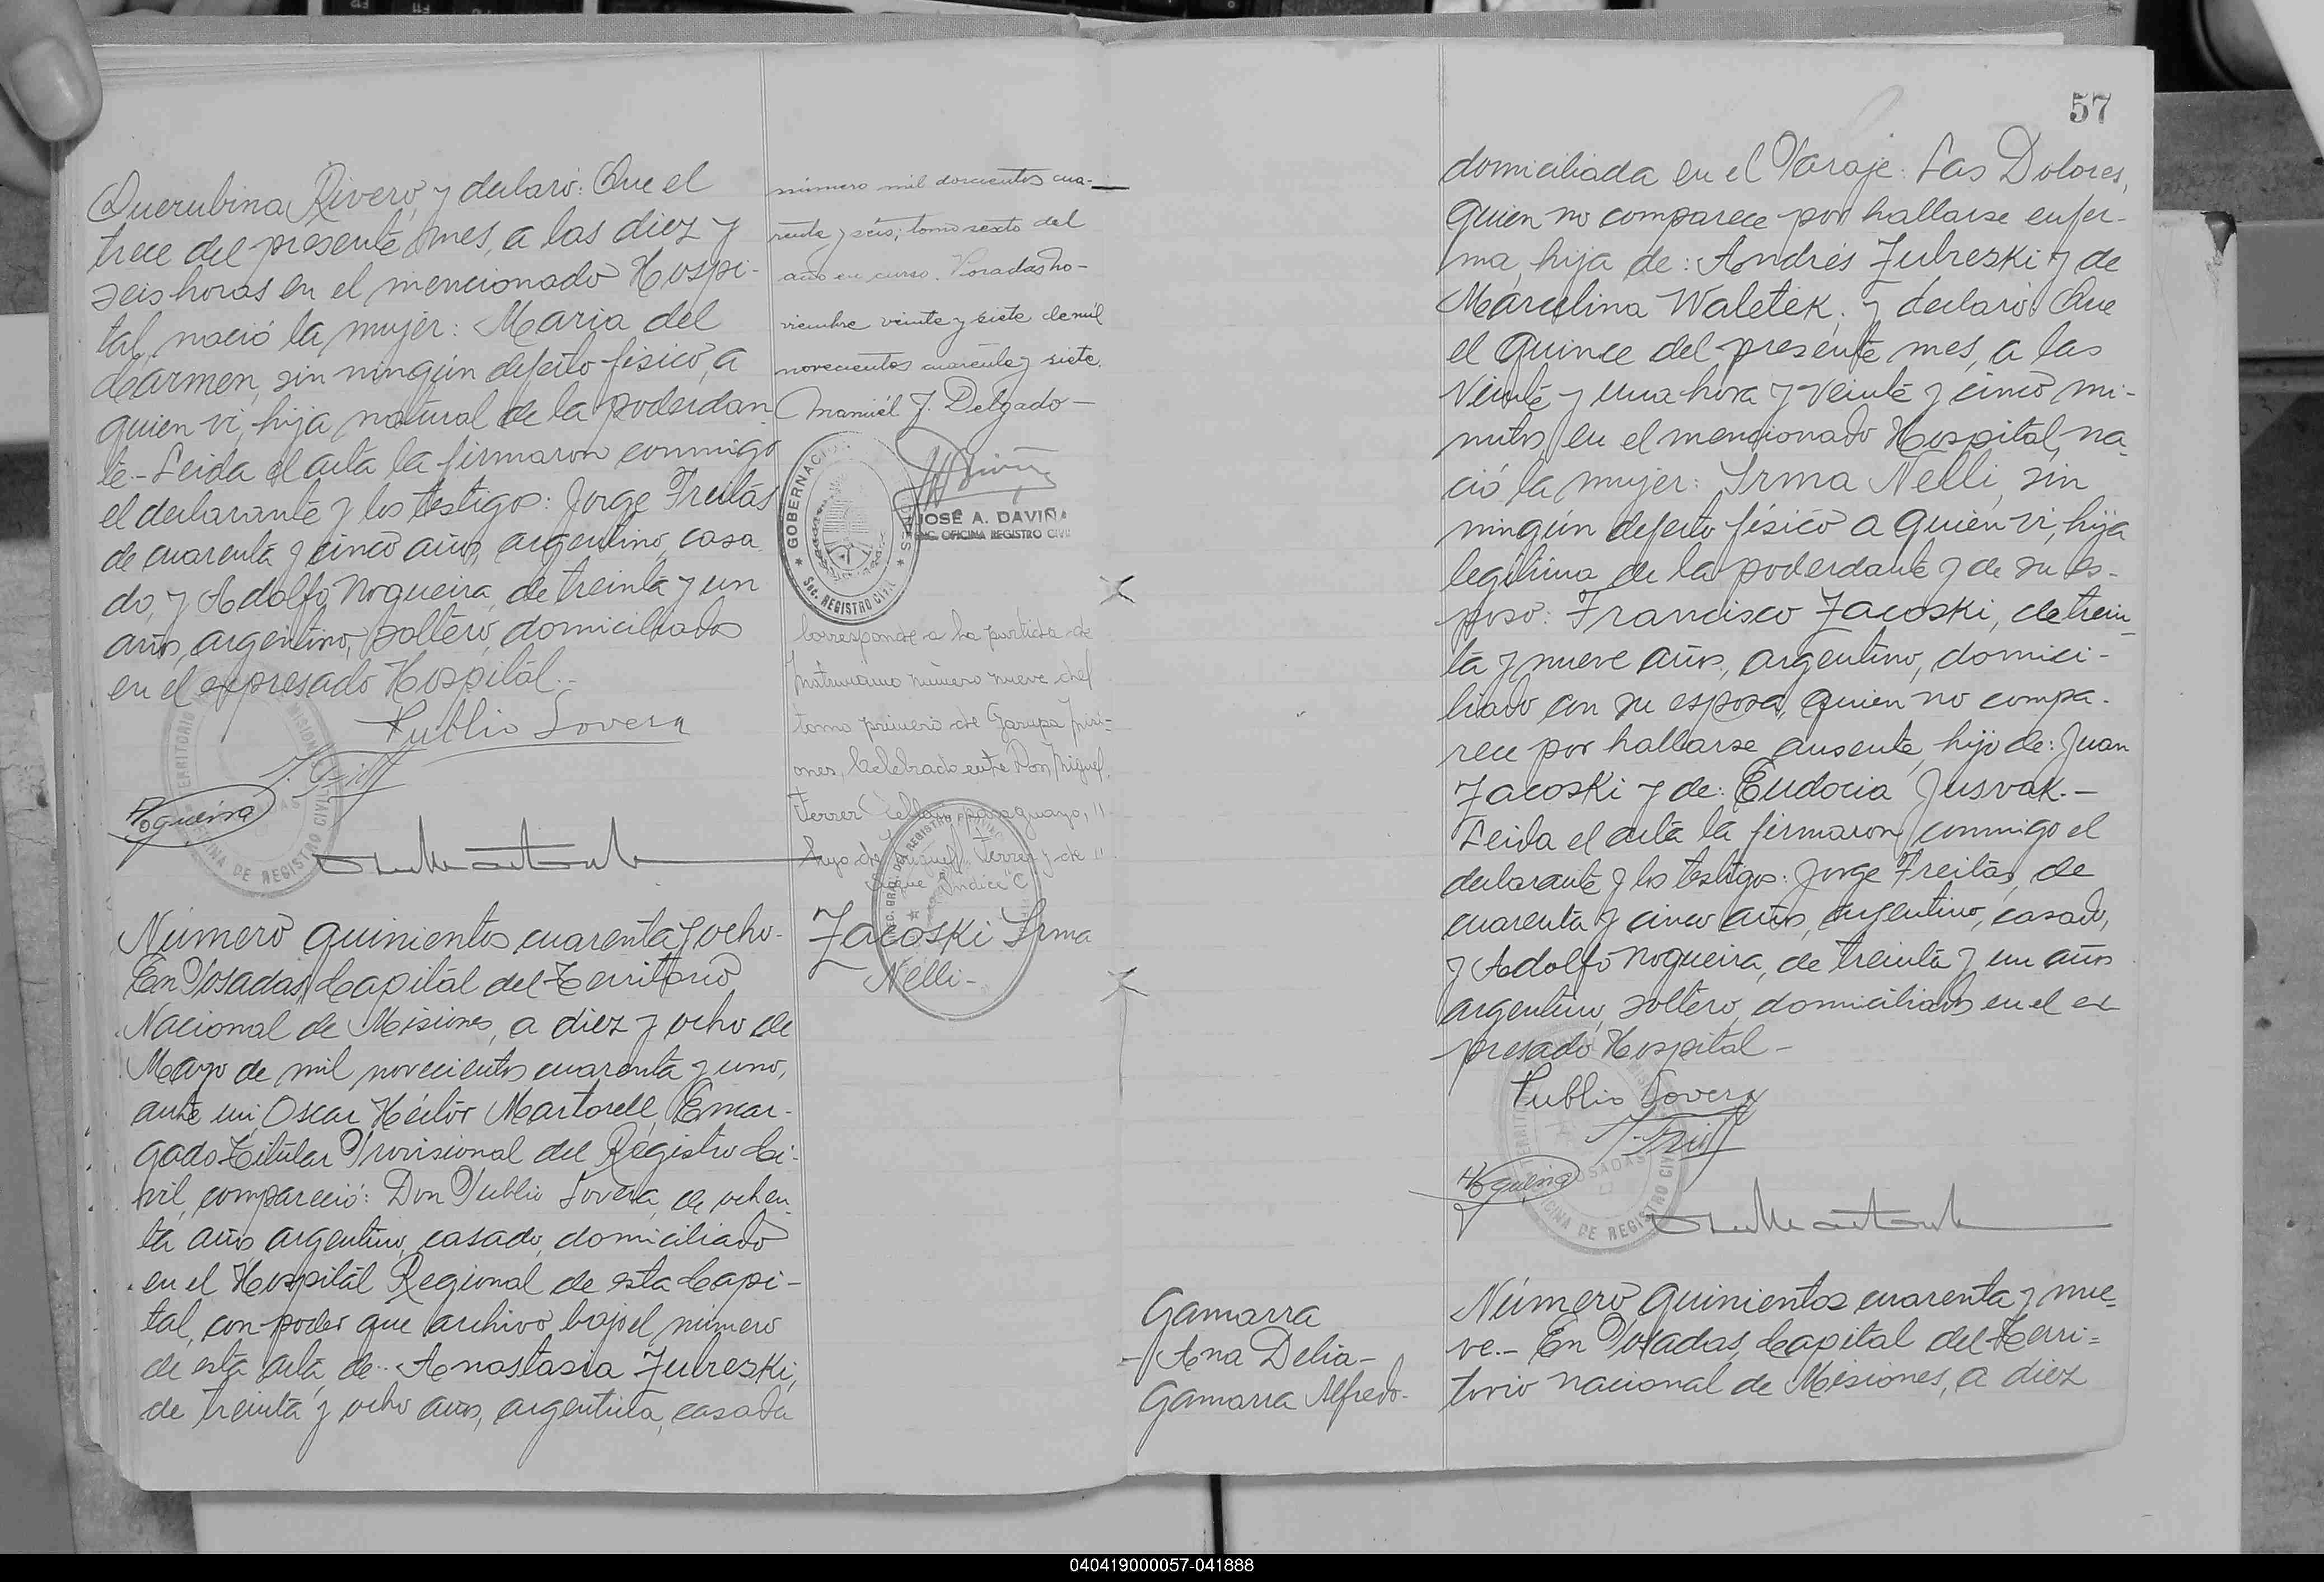 Querubina Rivero, y declaró: Que el
trece del presente mes, a las diez y
seis horas en el mencionado Hospi-
tal, nació la mujer: Maria del
Carmen, sin ningún defecto físico, a
quien vi, hija natural de la poderdan-
te.- Leida el acta la firmaron conmigo
el declarante y los testigos: Jorge Freitas
de cuarenta y cinco años, argentino, casa-
do, y Adolfo Nogueira, de treinta y un
años, argentino, soltero, domiciliados
en el expresado Hospital.-
Publio Lovera
Nogueira
Número quinientos cuarenta y ocho.
En Posadas, Capital del Territorio
Nacional de Misiones, a diez y ocho de
Mayo de mil novecientos cuarenta y uno,
ante mi, Oscar Héctor Martorell, Encar-
gado Titular Provisional del Registro Ci-
vil, compareció: Don Publio Lovera, de ochen-
ta años, argentino, casado, domiciliado
en el Hospital Regional de esta Capi-
tal, con poder que archivo bajo el número
de esta acta, de: Anastasia Zubreski,
de treinta y ocho años, argentina, casada
número mil doscientos cua-
renta y seis, tomo sexto del
año en curso. Posadas no-
viembre veinte y siete de mil
novecientos cuarenta y siete.
Manuel J. Delgado
GOBERNACION
SEC. REGISTRO CIVIL
JOSÉ A. DAVIÑA
ENC. OFICINA REGISTRO CIVIL
Corresponde a la partida de
Matrimonio número nueve del
tomo primero de Garupa, Misi-
ones, Celebrado entre Don Miguel
Ferrer, paraguayo,
hijo de Miguel Ferrer y de
Sigue Indice "C"
Zacoski Irma
Nelli-
57
domiciliada en el Paraje: Las Dolores,
quien no comparece por hallarse enfer-
ma, hija de: Andrés Zubreski y de
Marcelina Waletek, y declaró: Que
el quince del presente mes, a las
veinte y una hora y veinte y cinco mi-
nutos, en el mencionado Hospital, na-
ció la mujer: Irma Nelli, sin
ningún defecto físico a quien vi, hija
legítima de la poderdante y de su es-
poso: Francisco Zacoski, de trein-
ta y nueve años, argentino, domici-
liado con su esposa, quien no compa-
rece por hallarse ausente, hijo de: Juan
Zacoski y de: Eudocia Jusvak.-
Leida el acta la firmaron conmigo el
declarante y los testigos: Jorge Freitas, de
cuarenta y cinco años, argentino, casado,
y Adolfo Nogueira, de treinta y un años
argentino, soltero, domiciliados en el ex-
presado Hospital-
Publio Lovera
Nogueira
Gamarra
-Ana Delia-
Gamarra Alfredo-
Número quinientos cuarenta y nue-
ve.- En Posadas, Capital del Terri-
torio nacional de Misiones, a diez
040419000057-041888